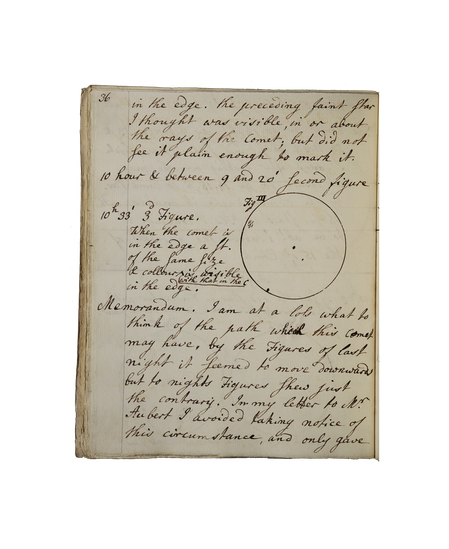 36
in the edge. the preceding faint star
I thought was visible, in or about
the rays of the Comet; but did not
see it plain enough to mark it.
10 hour & between 9 and 20' second figure
Fig III
10h 33' 3d Figure.
When the comet is
in the edge a st.
of the same size
& collour is visible
with that in the C
in the edge.
Memorandum. I am at a loss what to
think of the path which this Comet
may have, by the Figures of last
night it seemed to move downwards
but to nights Figures shew just
the contrary. In my letter to Mr.
Aubert I avoided taking notice of
this circumstance, and only gave